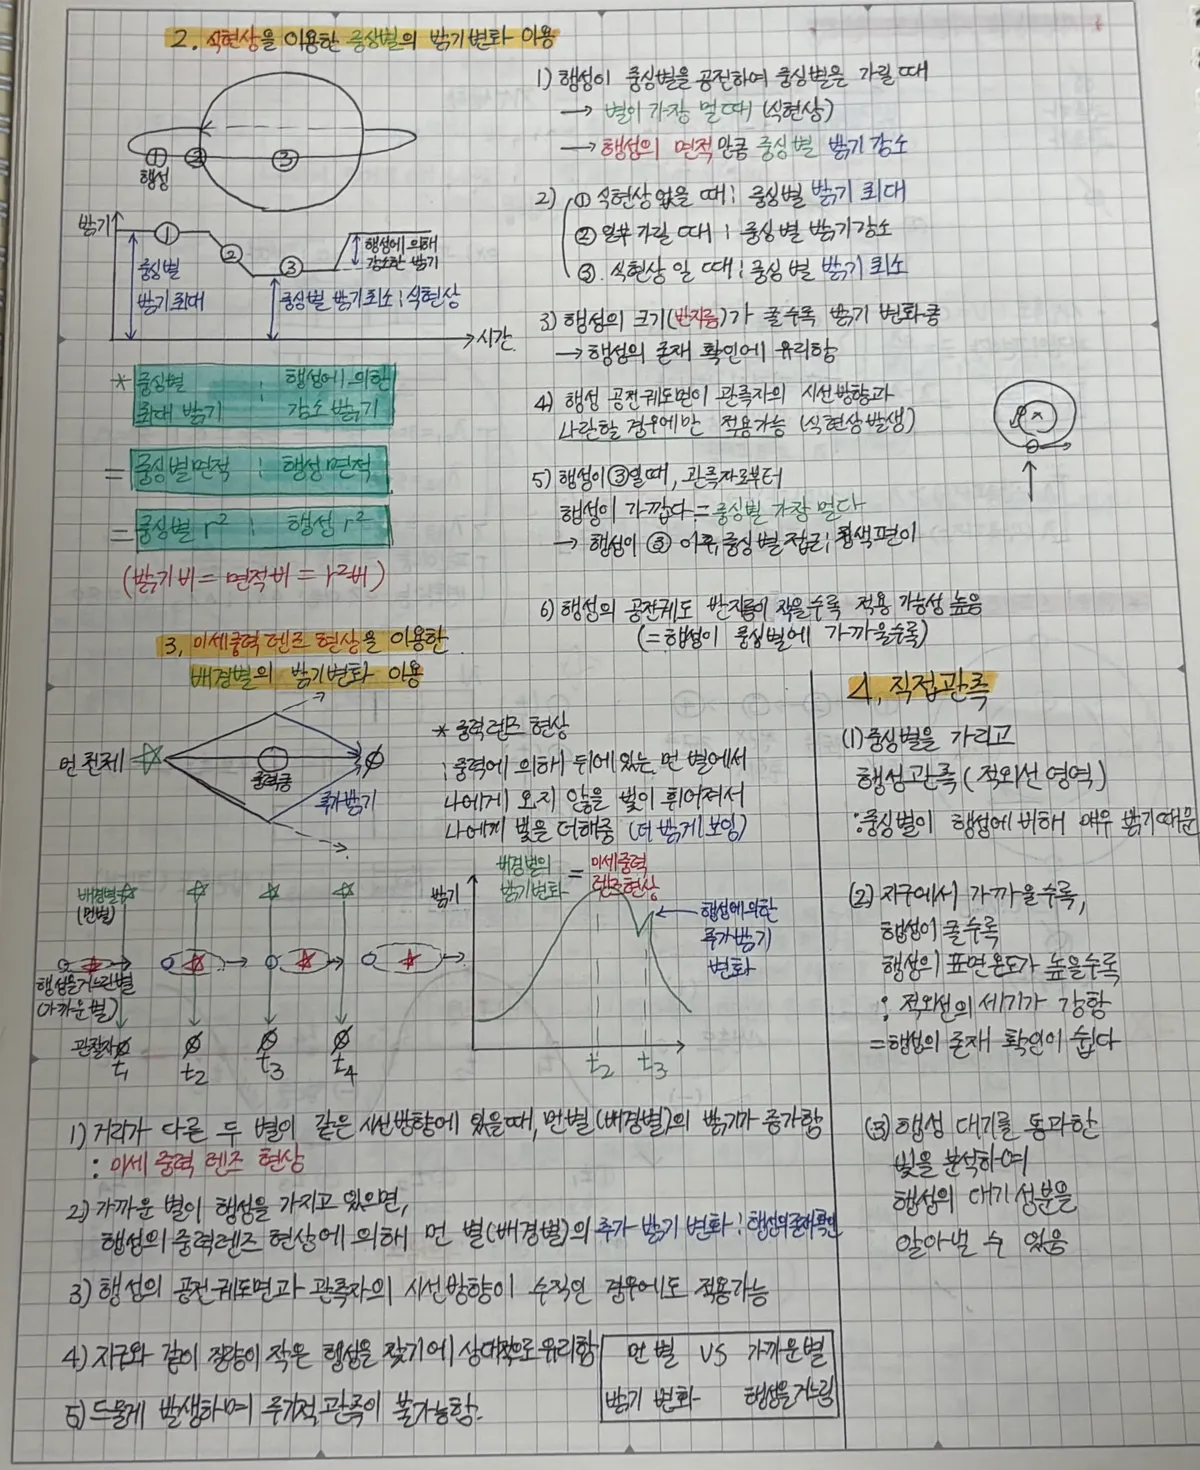 2. 식현상을 이용한 중심별의 밝기변화 이용
① ② ③
행성
밝기
① ② ③
중심별
밝기최대
행성에 의해
감소한 밝기
중심별 밝기최소 : 식현상
시간
* 중심별 최대 밝기 : 행성에 의한 감소 밝기
= 중심별면적 : 행성 면적
= 중심별 r² : 행성 r²
(밝기 비 = 면적비 = r²비)
1) 행성이 중심별을 공전하여 중심별을 가릴 때
→ 별이 가장 멀 때 (식현상)
→ 행성의 면적 만큼 중심별 밝기 감소
2) ① 식현상 없을 때 : 중심별 밝기 최대
② 일부 가릴 때 : 중심별 밝기감소
③ 식현상 일 때 : 중심별 밝기 최소
3) 행성의 크기(반지름)가 클수록 밝기 변화 큼
→ 행성의 존재 확인에 유리함
4) 행성 공전궤도면이 관측자의 시선방향과
나란할 경우에만 적용가능 (식현상발생)
5) 행성이 ③일 때, 관측자로부터
행성이 가깝다 = 중심별 가장 멀다
→ 행성이 ③ 이후, 중심별 접근 ; 청색편이
6) 행성의 공전궤도 반지름이 작을수록 적용 가능성 높음
(= 행성이 중심별에 가까울수록)
3. 미세중력렌즈 현상을 이용한
배경별의 밝기변화 이용
먼 천체
중력공
추가밝기
* 중력렌즈 현상
: 중력에 의해 뒤에 있는 먼 별에서
나에게 오지 않을 빛이 휘어져서
나에게 빛을 더해줌 (더 밝게보임)
배경별
(먼별)
행성을거느린별
(가까운별)
관찰자
t₁ t₂ t₃ t₄
밝기
배경별의
밝기변화
= 미세중력
렌즈현상
행성에의한
추가밝기
변화
t₂ t₃
1) 거리가 다른 두 별이 같은 시선방향에 있을때, 먼별(배경별)의 밝기가 증가함
: 미세 중력 렌즈 현상
2) 가까운 별이 행성을 가지고 있으면,
행성의 중력렌즈 현상에 의해 먼 별(배경별)의 추가 밝기 변화 : 행성의존재확인
3) 행성의 공전궤도면과 관측자의 시선방향이 수직인 경우에도 적용가능
4) 지구와 같이 질량이 작은 행성을 찾기에 상대적으로유리함
5) 드물게 발생하며 주기적 관측이 불가능함.
먼 별 VS 가까운별
밝기 변화 행성을거느림
4. 직접관측
(1) 중심별을 가리고
행성관측 (적외선 영역)
: 중심별이 행성에 비해 매우 밝기때문
(2) 지구에서 가까울수록,
행성이 클수록
행성의 표면온도가 높을수록
: 적외선의 세기가 강함
= 행성의 존재 확인이 쉽다
(3) 행성 대기를 통과한
빛을 분석하여
행성의 대기성분을
알아낼 수 있음